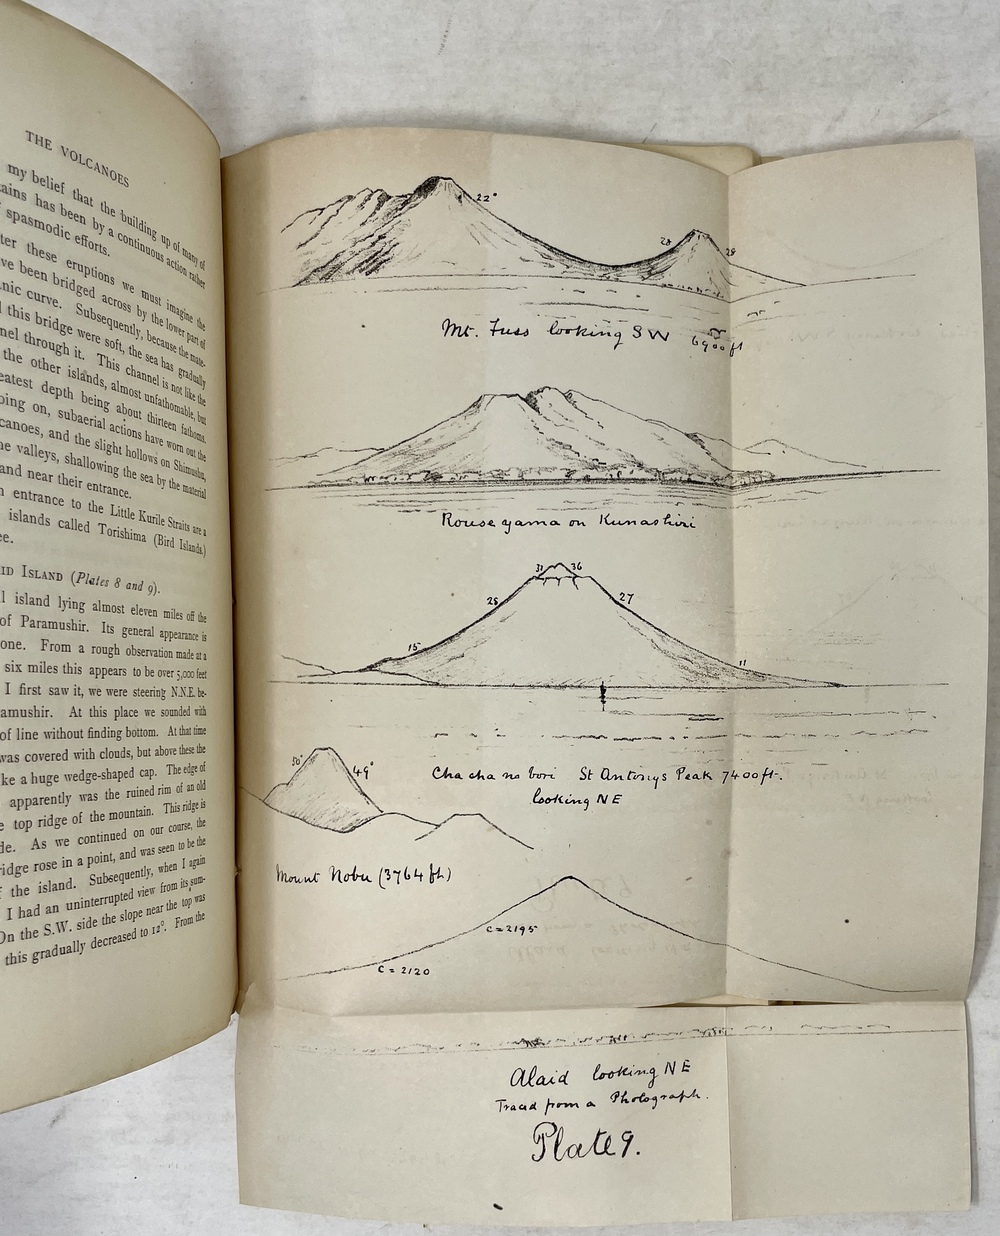 THE VOLCANOES
my belief that the building up of many of
ains has been by a continuous action rather
f spasmodic efforts.
ter these eruptions we must imagine the
ve been bridged across by the lower part of
nic curve. Subsequently, because the mate-
l this bridge were soft, the sea has gradually
nel through it. This channel is not like the
the other islands, almost unfathomable, but
eatest depth being about thirteen fathoms.
oing on, subaerial actions have worn out the
canoes, and the slight hollows on Shimushu,
he valleys, shallowing the sea by the material
and near their entrance.
n entrance to the Little Kurile Straits are a
islands called Torishima (Bird Islands.)
ee.
ID ISLAND (Plates 8 and 9).
l island lying almost eleven miles off the
of Paramushir. Its general appearance is
one. From a rough observation made at a
six miles this appears to be over 5,000 feet
I first saw it, we were steering N.N.E. be-
amushir. At this place we sounded with
of line without finding bottom. At that time
was covered with clouds, but above these the
ke a huge wedge-shaped cap. The edge of
apparently was the ruined rim of an old
e top ridge of the mountain. This ridge is
de. As we continued on our course, the
ridge rose in a point, and was seen to be the
f the island. Subsequently, when I again
I had an uninterrupted view from its sum-
On the S.W. side the slope near the top was
this gradually decreased to 12°. From the
22°
28 28
Mt. Fuss looking SW 6900 ft
Rouse yama on Kunashiri
31 36
28 27
15 11
Cha cha no bori St Antonys Peak 7400 ft.
looking NE
50° 49°
Mount Nobu (3764 ft)
C = 2195
C = 2120
Alaid looking NE
Traced from a Photograph.
Plate 9.